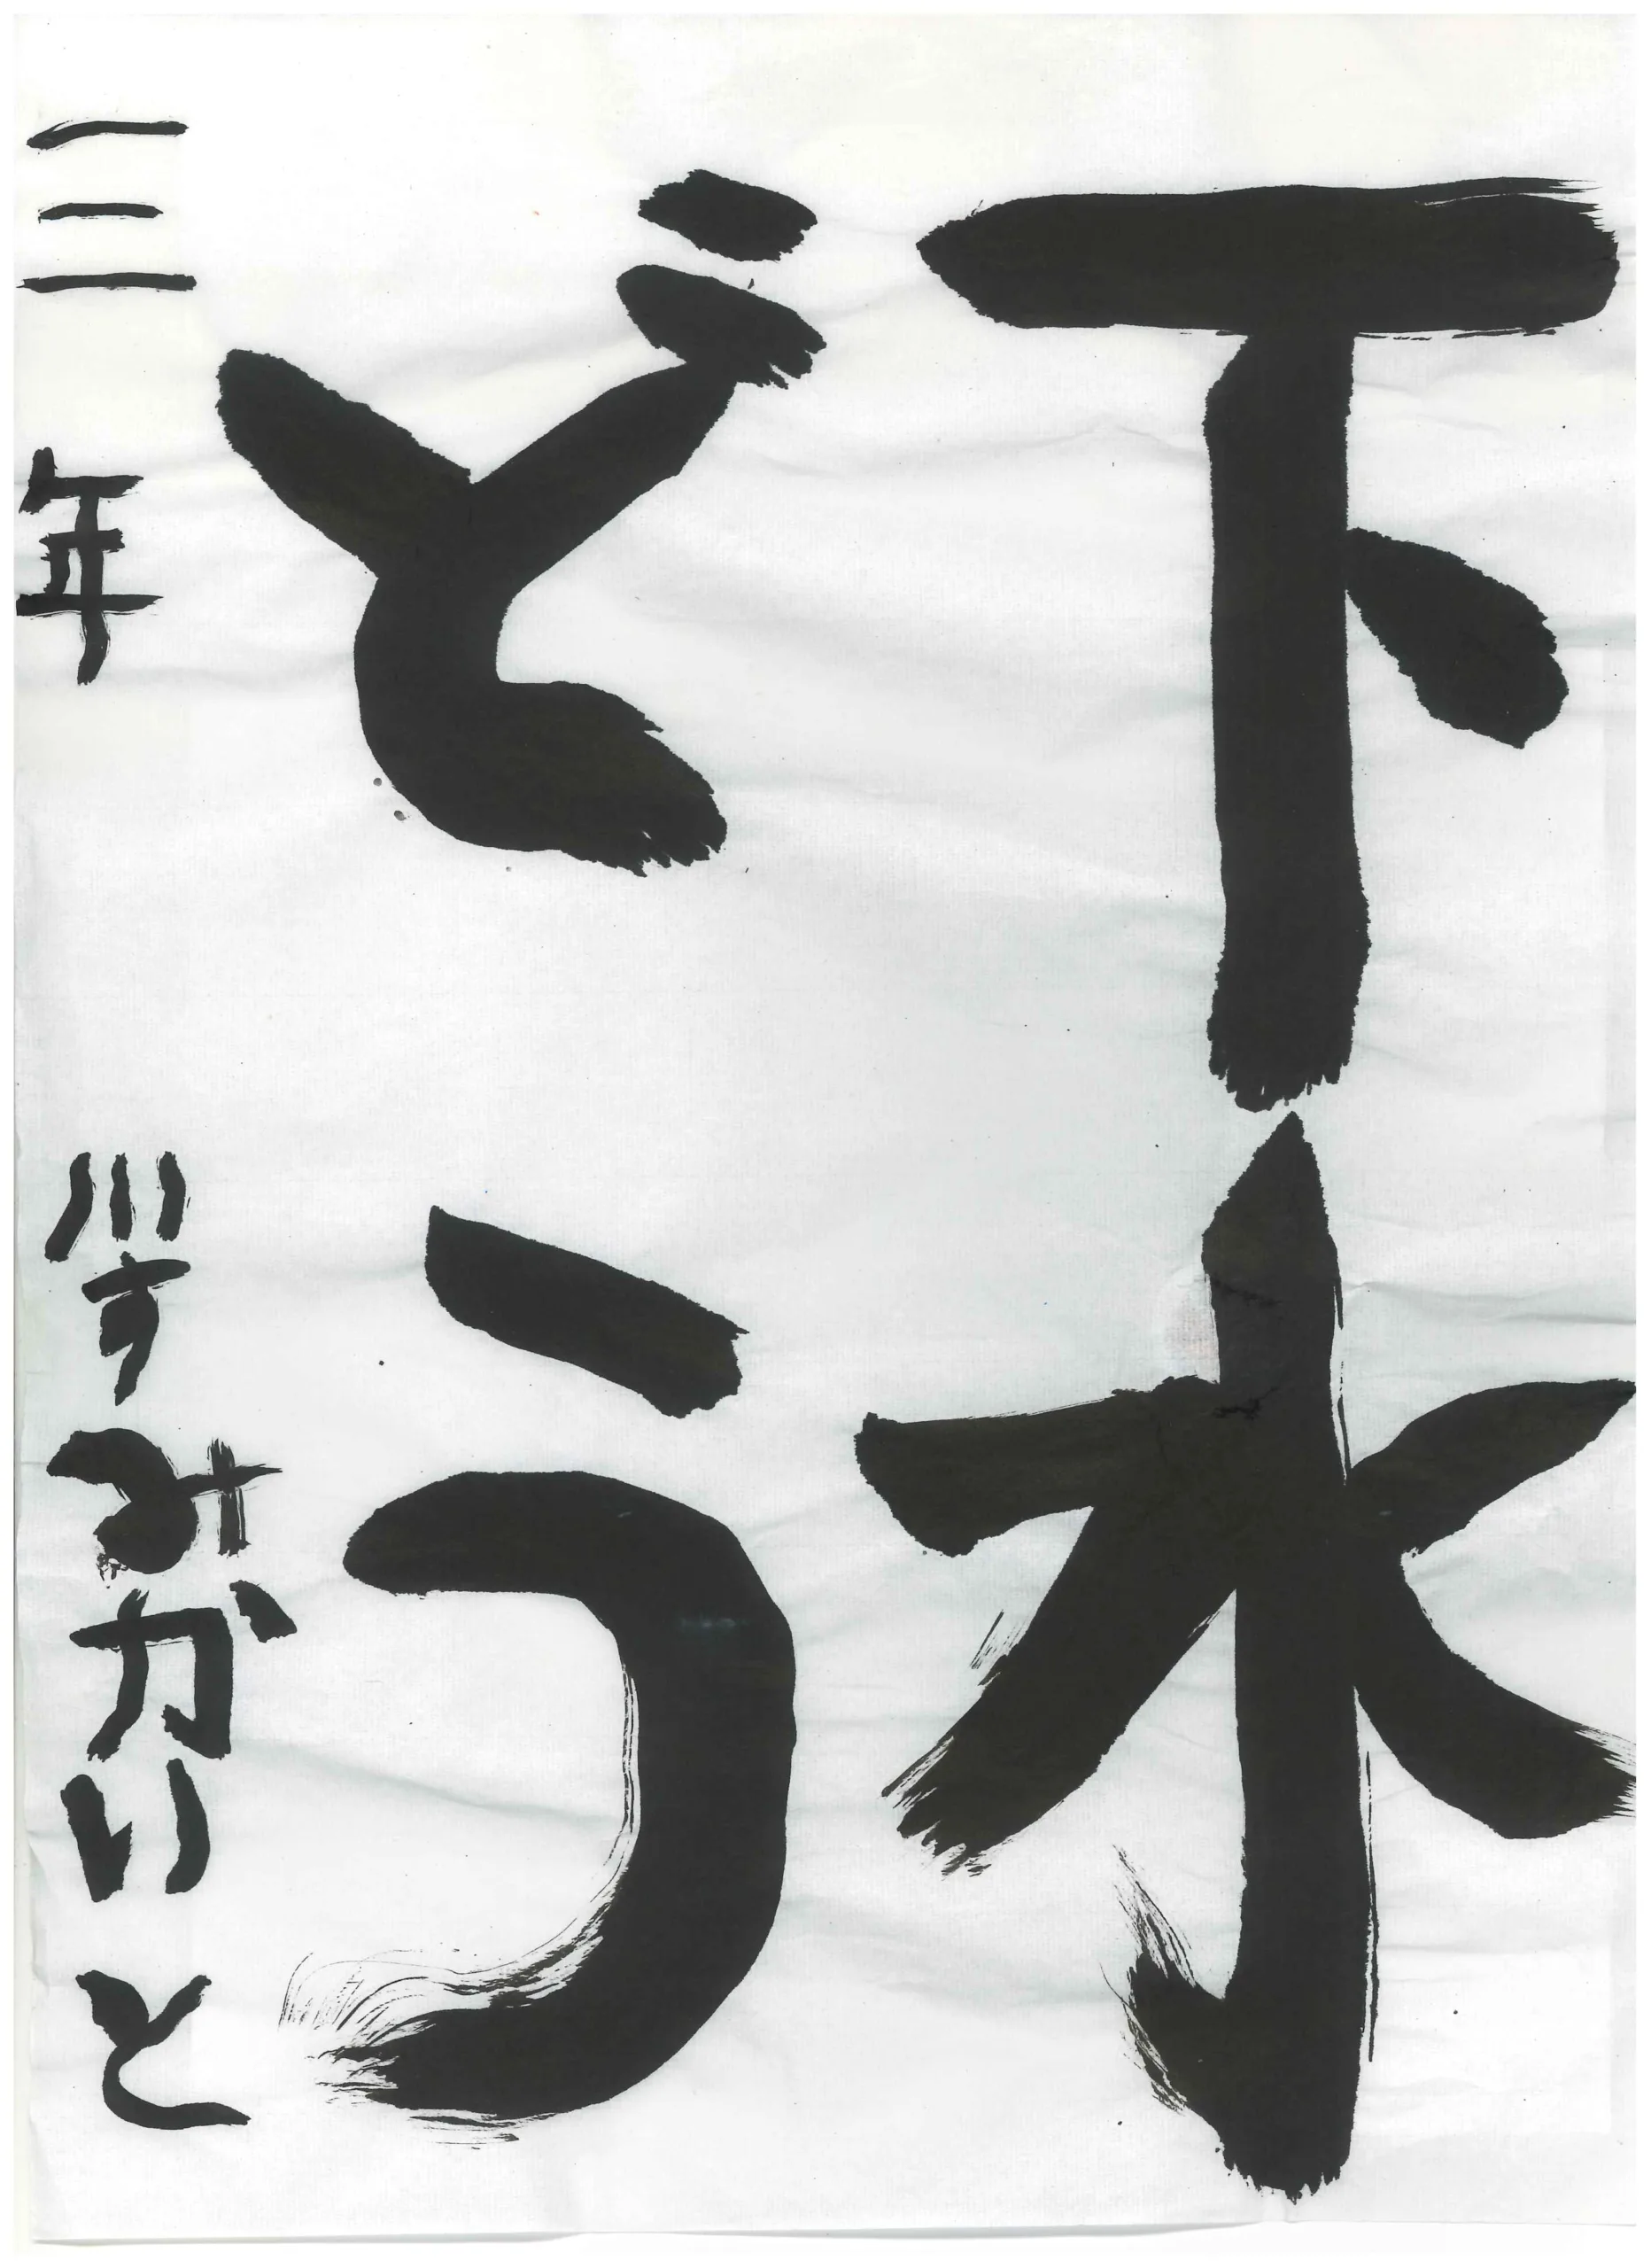 下水
どう
三年 川すみかいと